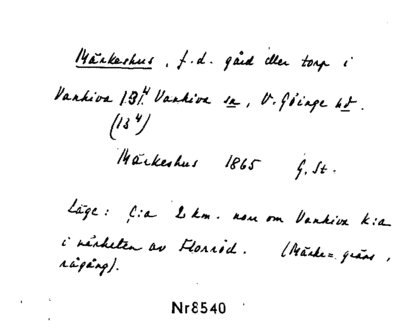 Märkeshus, f.d. gård eller torp i
Vankiva 13⁴. Vankiva sn, V. Göinge hd.
(13⁴)
Märkeshus 1865 G.St.
Läge: C:a 2 km. norr om Vankiva k:a
i närheten av Florröd. (Märke = gräns,
rågång).
Nr8540